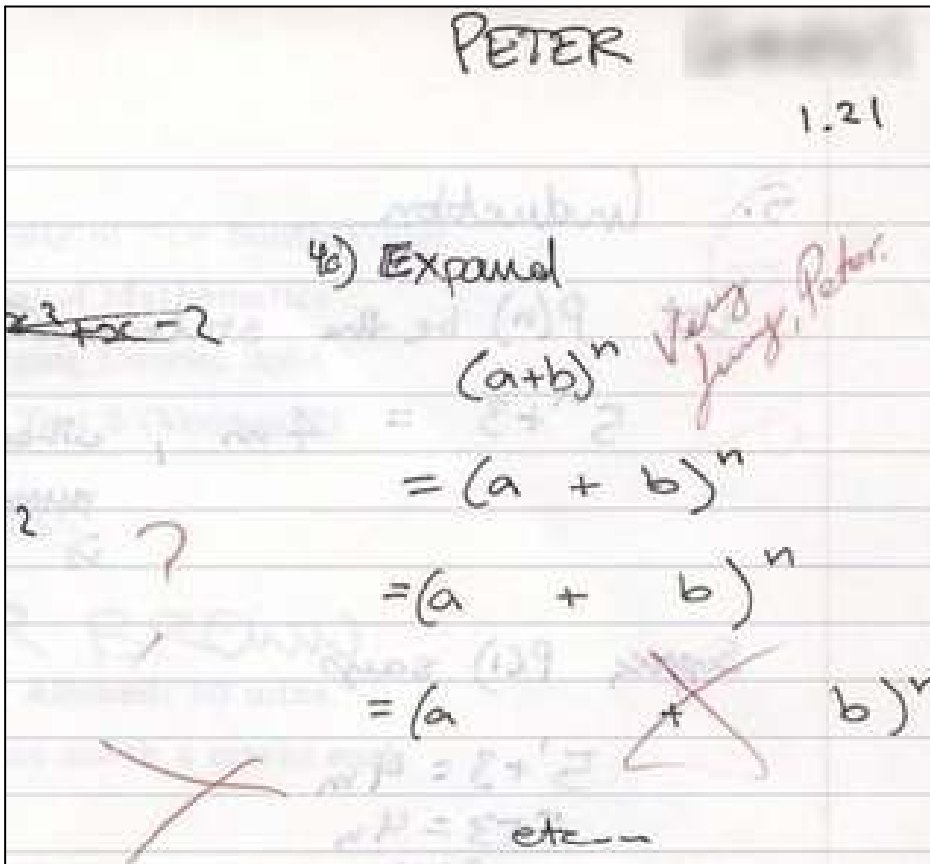 PETER
1.21
4c) Expand
x² + x - 2
Very funny, Peter.
(a+b)ⁿ
= (a + b)ⁿ
2
?
= (a + b)ⁿ
= (a + b)ⁿ
etc...